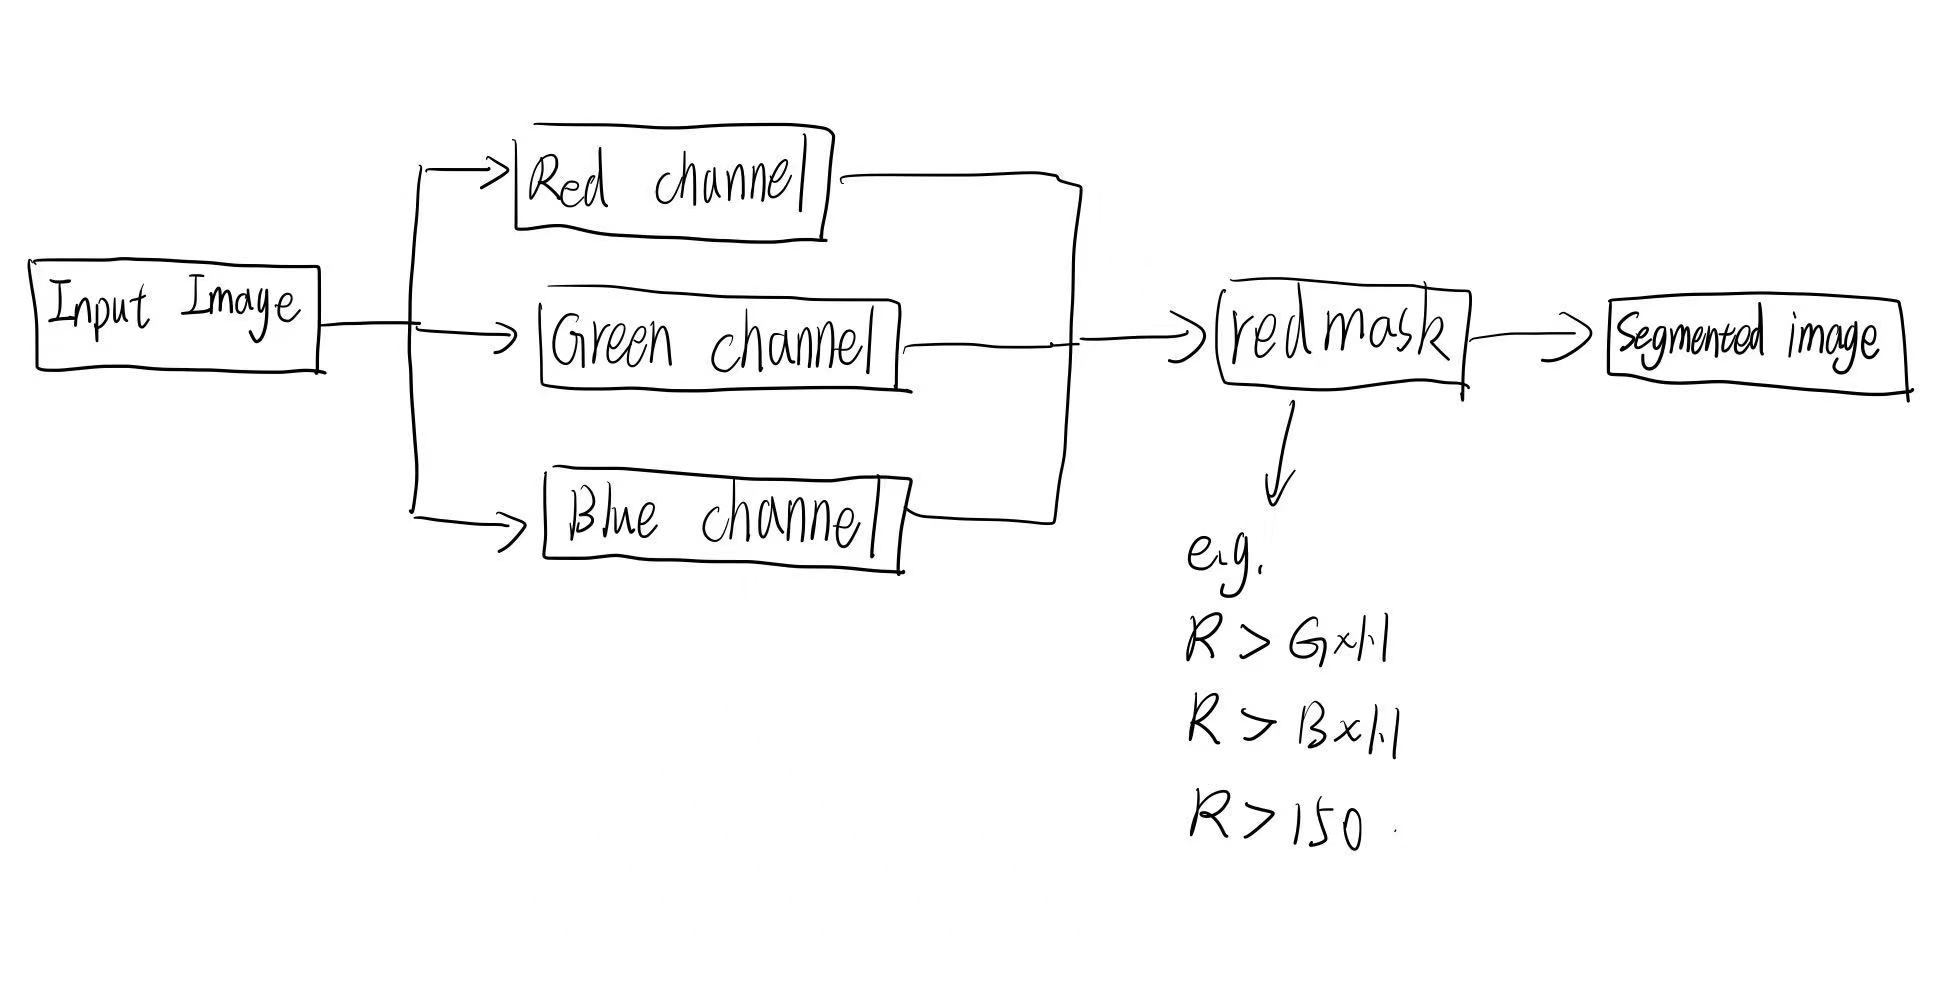 Input Image
Red channel
Green channel
Blue channel
red mask
Segmented image
e.g.
R > G×1.1
R > B×1.1
R > 150